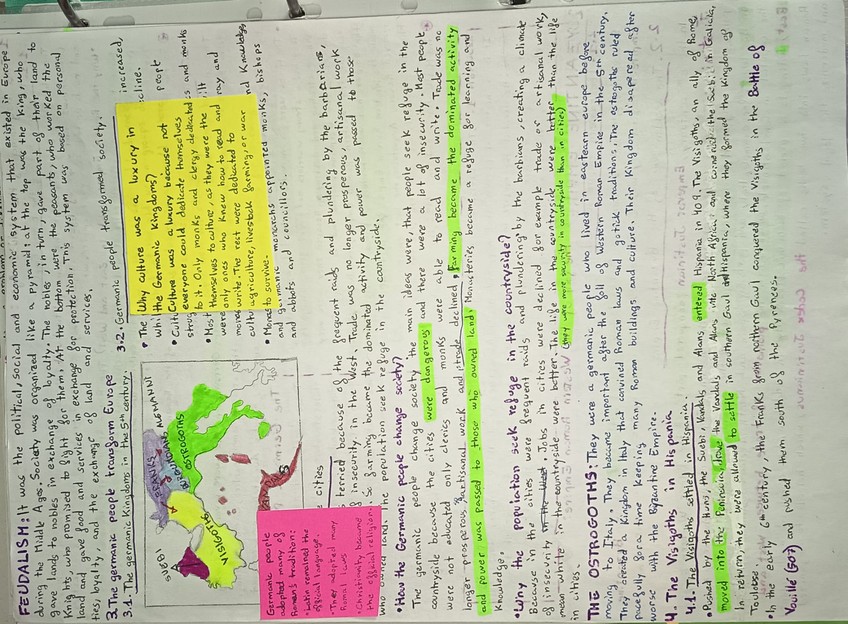 FEUDALISM: It was the political, social and economic system that existed in Europe
during the Middle Ages. Society was organized like a pyramid: at the top was the King, who
gave lands to nobles in exchange of loyalty. The nobles, in turn, gave part of their land to
Knights, who promised to fight for them. At the bottom were the peasants, who worked the
land and gave food and services in exchange for protection. This system was based on personal
ties, loyalty, and the exchange of land and services.
3. The germanic people transform Europe
3.1. The germanic Kingdoms in the 5th century.
SUEBI
FRANKS
ALEMANNI
BURGUNDI
OSTROGOTHS
VISIGOTHS
VANDALS
3.2. Germanic people transformed society.
increased,
cline.
• Why culture was a luxury in
the Germanic Kingdoms?
Culture was a luxury because not
everyone could dedicate themselves
to it. Only monks and clergy dedicated
themselves to culture, as they were the
only ones who knew how to read and
write. The rest were dedicated to
agriculture, livestock farming, or war
to survive.
• The
• Cult
• Most
and germanic monarchs appointed monks, bishops
and abbots and councillors.
Germanic people
adopted many of
Roman tradition:
• Latin remained the
official language.
• They adopted many
Roman laws
• Christianity became
the official religion.
cities
terried because of the frequent raids and plundering by the barbarians,
of insecurity in the West. Trade was no longer prosperous, artisanal work
So farming became the dominated activity and power was passed to those
who owned land. The population seek refuge in the countryside.
• How the Germanic people change society?
The germanic people change society the main ideas were, that people seek refuge in the
countryside because the cities were dangerous and there were a lot of insecurity. Most people
were not educated only clerics and monks were able to read and write. Trade was no
longer prosperous, artisanal work and trade declined, farming became the dominated activity
and power was passed to those who owned land. Monasteries became a refuge for learning and
Knowledge.
• Why the population seek refuge in the countryside?
Because in the cities were frequent raids and plundering by the barbians, creating a climate
of insecurity in the West. Jobs in cities were declined for example trade or artisanal work,
mean white in the countryside were better. The life in the countryside were better than the life
in cities. (they were more security in countryside than in cities)
THE OSTROGOTHS: They were a germanic people who lived in eastearn europe before
moving to Italy. They became important after the fall of Western Roman Empire in the 5th century.
They created a Kingdom in Italy that convised Roman laws and gotick traditions. The estrogoths ruled
pacefully for a time keeping many Roman buildings and culture. Their Kingdom disapperad after
worse with the Byzantine Empire.
4. The Visigoths in Hispania
4.1. The Visigoths settled in Hispania.
• Pushed by the Huns, the Suebi, Vandals and Alans entered Hispania in 409. The Visigoths, an ally of Rome,
moved into the Peninsula, drove the Vandals and Alans into North Africa and cornered the Suebi in Galicia,
In return, they were allowed to settle in southern Gaul and Hispania, where they formed the Kingdom of
Toulosse.
• In the early 6th century, the Franks from northern Gaul conquered the Visigoths in the Battle of
Vouillé (507) and pushed them south of the Pyrenees.